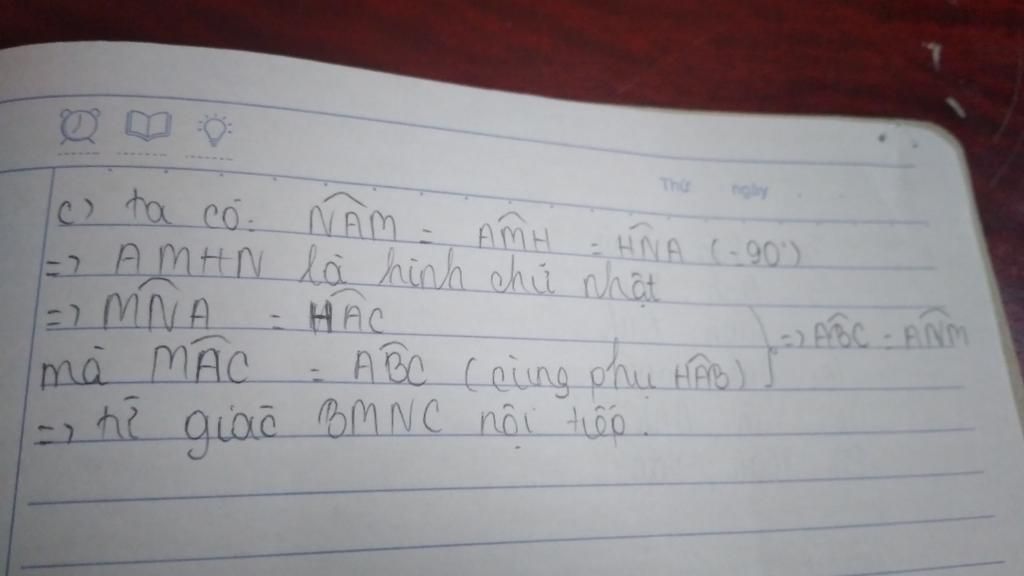 Thứ ngày
c) ta có: NAM = AMH = HNA (=90°)
=> AMHN là hình chữ nhật
=> MNA = HAC
mà MAC = ABC (cùng phụ HAB)
=> ABC = ANM
=> tứ giác BMNC nội tiếp.